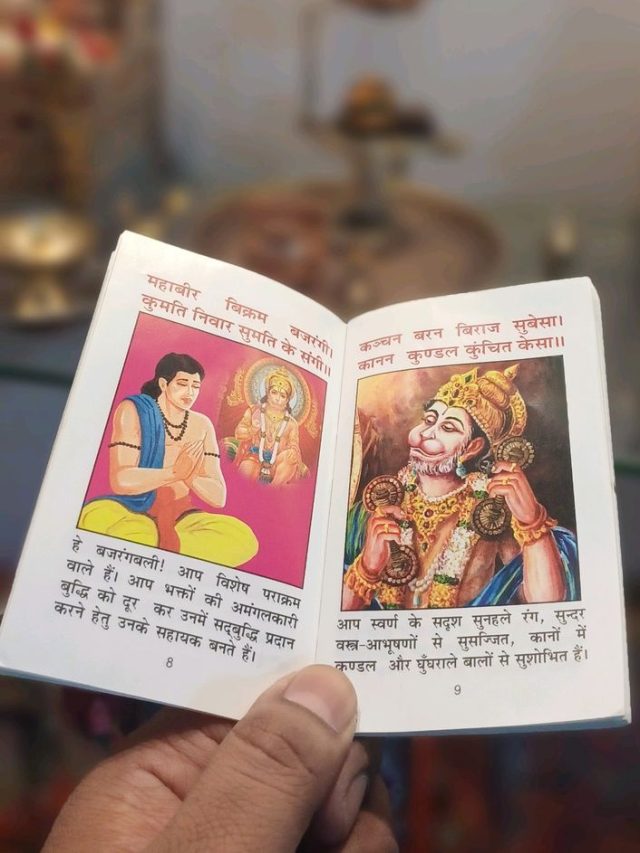 महाबीर बिक्रम बजरंगी।
कुमति निवार सुमति के संगी।।
हे बजरंगबली! आप विशेष पराक्रम
वाले हैं। आप भक्तों की अमंगलकारी
बुद्धि को दूर कर उनमें सद्‌बुद्धि प्रदान
करने हेतु उनके सहायक बनते हैं।
8
कञ्चन बरन बिराज सुबेसा।
कानन कुण्डल कुंचित केसा।।
आप स्वर्ण के सदृश सुनहले रंग, सुन्दर
वस्त्र-आभूषणों से सुसज्जित, कानों में
कुण्डल और घुँघराले बालों से सुशोभित हैं।
9